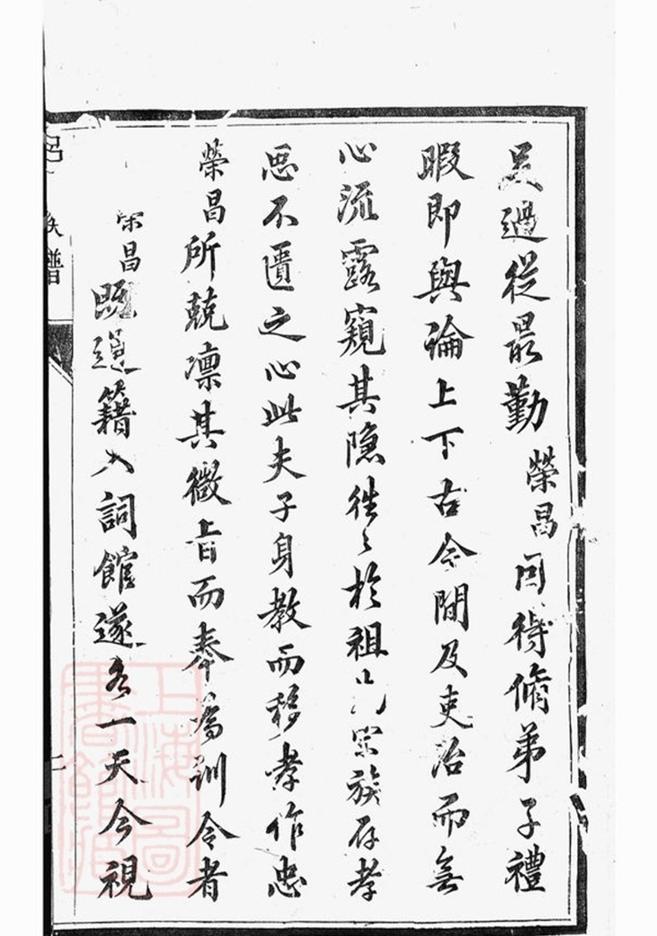 足過從最勤榮昌因得脩弟子禮
暇即與論上下古今間及吏治而無
心流露窺其隐徃〻於祖宗族存孝
思不匱之心此夫子身教而移孝作忠
榮昌所兢凜其微旨而奉為訓令者
榮昌既通籍入詞館遂各一天今視
族譜
上海圖書館藏